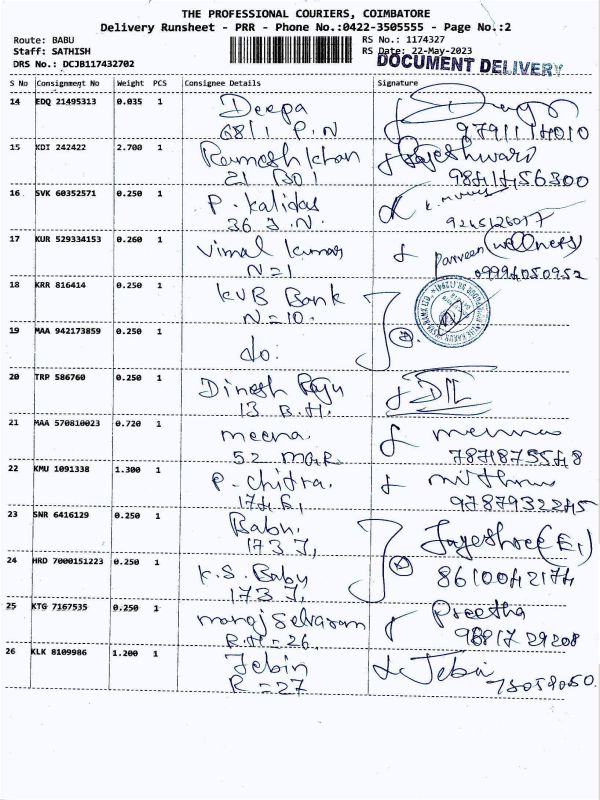 THE PROFESSIONAL COURIERS, COIMBATORE
Delivery Runsheet - PRR - Phone No.:0422-3505555 - Page No.:2
Route: BABU
RS No.: 1174327
Staff: SATHISH
RS Date: 22-May-2023
DRS No.: DCJB117432702
DOCUMENT DELIVERY
S No Consignment No Weight PCS Consignee Details Signature
14 EDQ 21495313 0.035 1 Deepa
68/1 P.N 9791114010
15 KDI 242422 2.700 1 Ramesh khan Rajeshwari
21 9841456300
16 SVK 60352571 0.250 1 P. Kalidas
36 J.N.
17 KUR 529334153 0.260 1 Vimal Kumar Parveen
N=1 09994050952
18 KRR 816414 0.250 1 KVB Bank
N=10.
19 MAA 942173859 0.250 1 do. 2
20 TRP 586760 0.250 1 Dinesh Raju
13 B.H.
21 MAA 570810023 0.720 1 meena
52 M.G.R. 7871875548
22 KMU 1091338 1.300 1 P. Chitra.
174 E, 9787932245
23 SNR 6416129 0.250 1 Babu. Jayeshree (E,)
173 J,
24 HRD 7000151223 0.250 1 K.S. Baby 2 8610042174
173 J,
25 KTG 7167535 0.250 1 manoj Selvaram Preetha
R.H=26.
26 KLK 8109986 1.200 1 Jebin Jebin
R=27